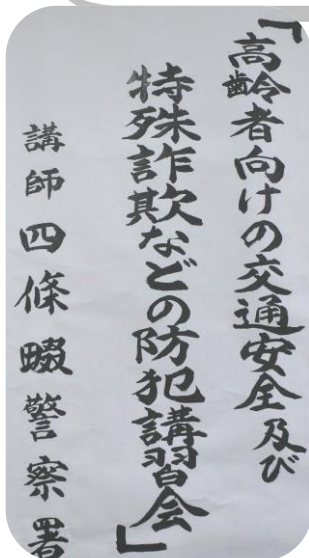 「高齢者向けの交通安全及び
特殊詐欺などの防犯講習会」
講師 四條畷警察署